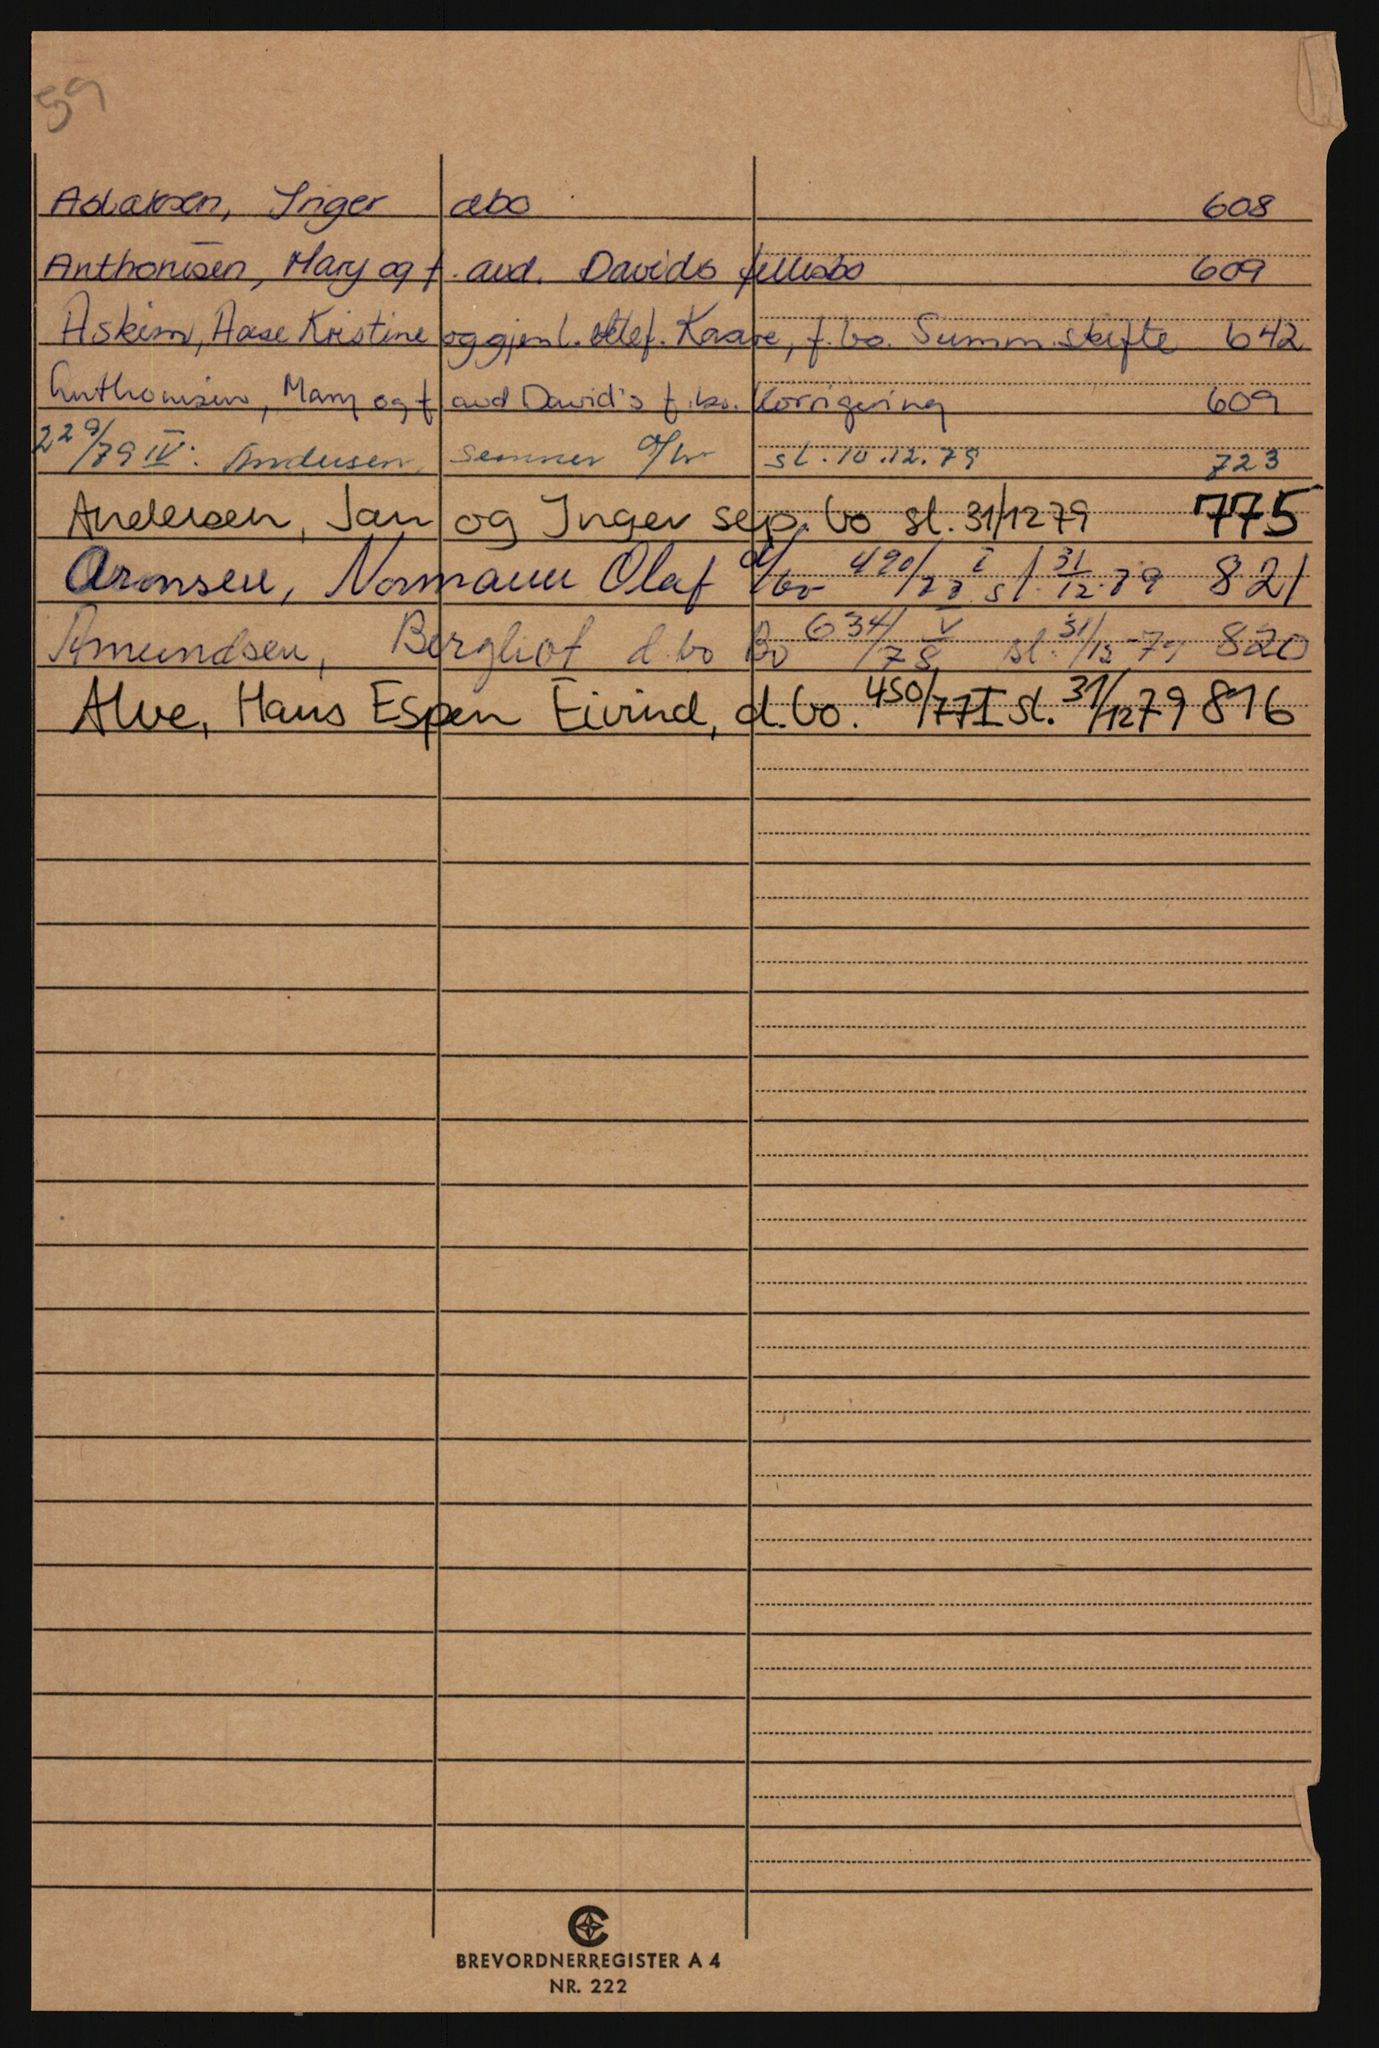 59
Aslaksen, Inger dbo 608
Anthonisen, Mary og f. avd. Davids fellesbo 609
Askim, Aase Kristine og gjenl. ektef. Kaare, f.bo. Summ.skifte 642
Anthonisen, Mary og f avd David's f.bo. Korrigering 609
229/79 IV. Andersen, d/bo sl. 10.12.79 723
Andersen, Jan og Inger sep. bo sl. 31/12 79 775
Aronsen, Normann Olaf d/bo 490/78 I sl. 31/12-79 821
Amundsen, Bergliot d.bo Bo 634/78 V sl. 31/12-79 820
Alve, Hans Espen Eivind, d.bo. 450/77 I sl. 31/12 79 816
BREVORDNERREGISTER A 4
NR. 222